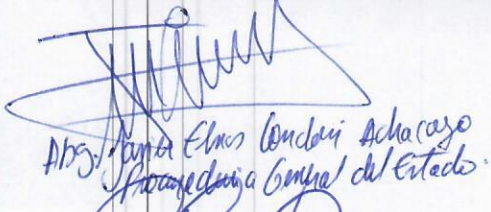 Abg. Elnos Condori Achacazo
Procuraduría General del Estado.